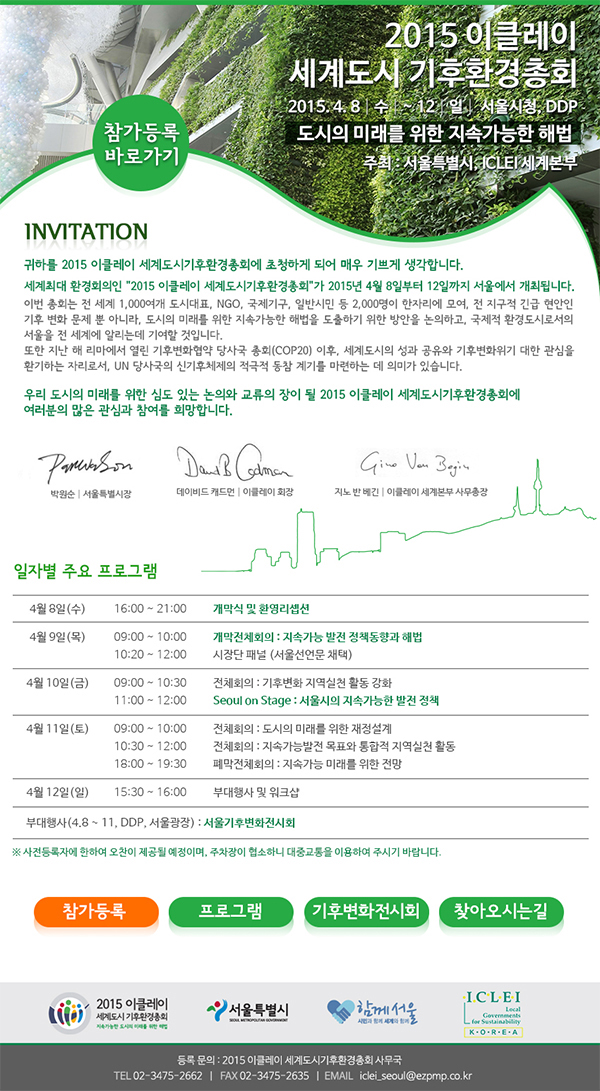 2015 이클레이
세계도시 기후환경총회
2015. 4. 8 | 수 | ~ 12 | 일 | 서울시청, DDP
도시의 미래를 위한 지속가능한 해법
주최 : 서울특별시, ICLEI 세계본부
참가등록
바로가기
INVITATION
귀하를 2015 이클레이 세계도시기후환경총회에 초청하게 되어 매우 기쁘게 생각합니다.
세계최대 환경회의인 "2015 이클레이 세계도시기후환경총회"가 2015년 4월 8일부터 12일까지 서울에서 개최됩니다.
이번 총회는 전 세계 1,000여개 도시대표, NGO, 국제기구, 일반시민 등 2,000명이 한자리에 모여, 전 지구적 긴급 현안인
기후 변화 문제 뿐 아니라, 도시의 미래를 위한 지속가능한 해법을 도출하기 위한 방안을 논의하고, 국제적 환경도시로서의
서울을 전 세계에 알리는데 기여할 것입니다.
또한 지난 해 리마에서 열린 기후변화협약 당사국 총회(COP20) 이후, 세계도시의 성과 공유와 기후변화위기 대한 관심을
환기하는 자리로서, UN 당사국의 신기후체제의 적극적 동참 계기를 마련하는 데 의미가 있습니다.
우리 도시의 미래를 위한 심도 있는 논의와 교류의 장이 될 2015 이클레이 세계도시기후환경총회에
여러분의 많은 관심과 참여를 희망합니다.
박원순 | 서울특별시장
데이비드 캐드먼 | 이클레이 회장
지노 반 베긴 | 이클레이 세계본부 사무총장
일자별 주요 프로그램
4월 8일(수) 16:00 ~ 21:00 개막식 및 환영리셉션
4월 9일(목) 09:00 ~ 10:00 개막전체회의 : 지속가능 발전 정책동향과 해법
10:20 ~ 12:00 시장단 패널 (서울선언문 채택)
4월 10일(금) 09:00 ~ 10:30 전체회의 : 기후변화 지역실천 활동 강화
11:00 ~ 12:00 Seoul on Stage : 서울시의 지속가능한 발전 정책
4월 11일(토) 09:00 ~ 10:00 전체회의 : 도시의 미래를 위한 재정설계
10:30 ~ 12:00 전체회의 : 지속가능발전 목표와 통합적 지역실천 활동
18:00 ~ 19:30 폐막전체회의 : 지속가능 미래를 위한 전망
4월 12일(일) 15:30 ~ 16:00 부대행사 및 워크샵
부대행사(4.8 ~ 11, DDP, 서울광장) : 서울기후변화전시회
※ 사전등록자에 한하여 오찬이 제공될 예정이며, 주차장이 협소하니 대중교통을 이용하여 주시기 바랍니다.
참가등록 프로그램 기후변화전시회 찾아오시는길
2015 이클레이
세계도시 기후환경총회
지속가능한 도시의 미래를 위한 해법
서울특별시
SEOUL METROPOLITAN GOVERNMENT
함께서울
시민과 함께 세계와 함께
I.C.L.E.I
Local
Governments
for Sustainability
K·O·R·E·A
등록 문의 : 2015 이클레이 세계도시기후환경총회 사무국
TEL 02-3475-2662 | FAX 02-3475-2635 | EMAIL iclei_seoul@ezpmp.co.kr